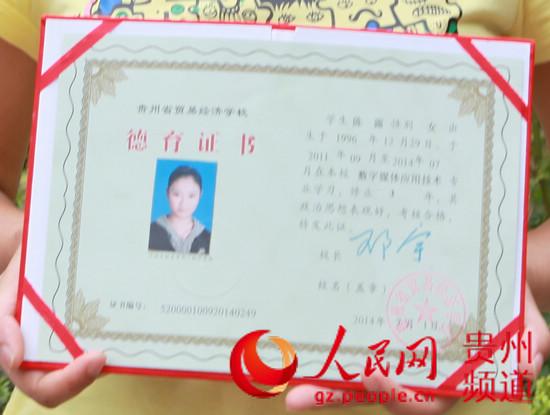 贵州省贸易经济学校
德育证书
证书编号: 520000100920140249
学生陈 露 性别 女 出
生于 1996 年 12 月29日, 于
2011 年 09 月至2014年 07
月在本校 数字媒体应用技术 专
业学习, 修业 3 年, 其
政治思想表现好, 考核合格,
特发此证.
校长
校名(盖章)
2014 年 7月 1 日
人民网
gz.people.cn
贵州
频道